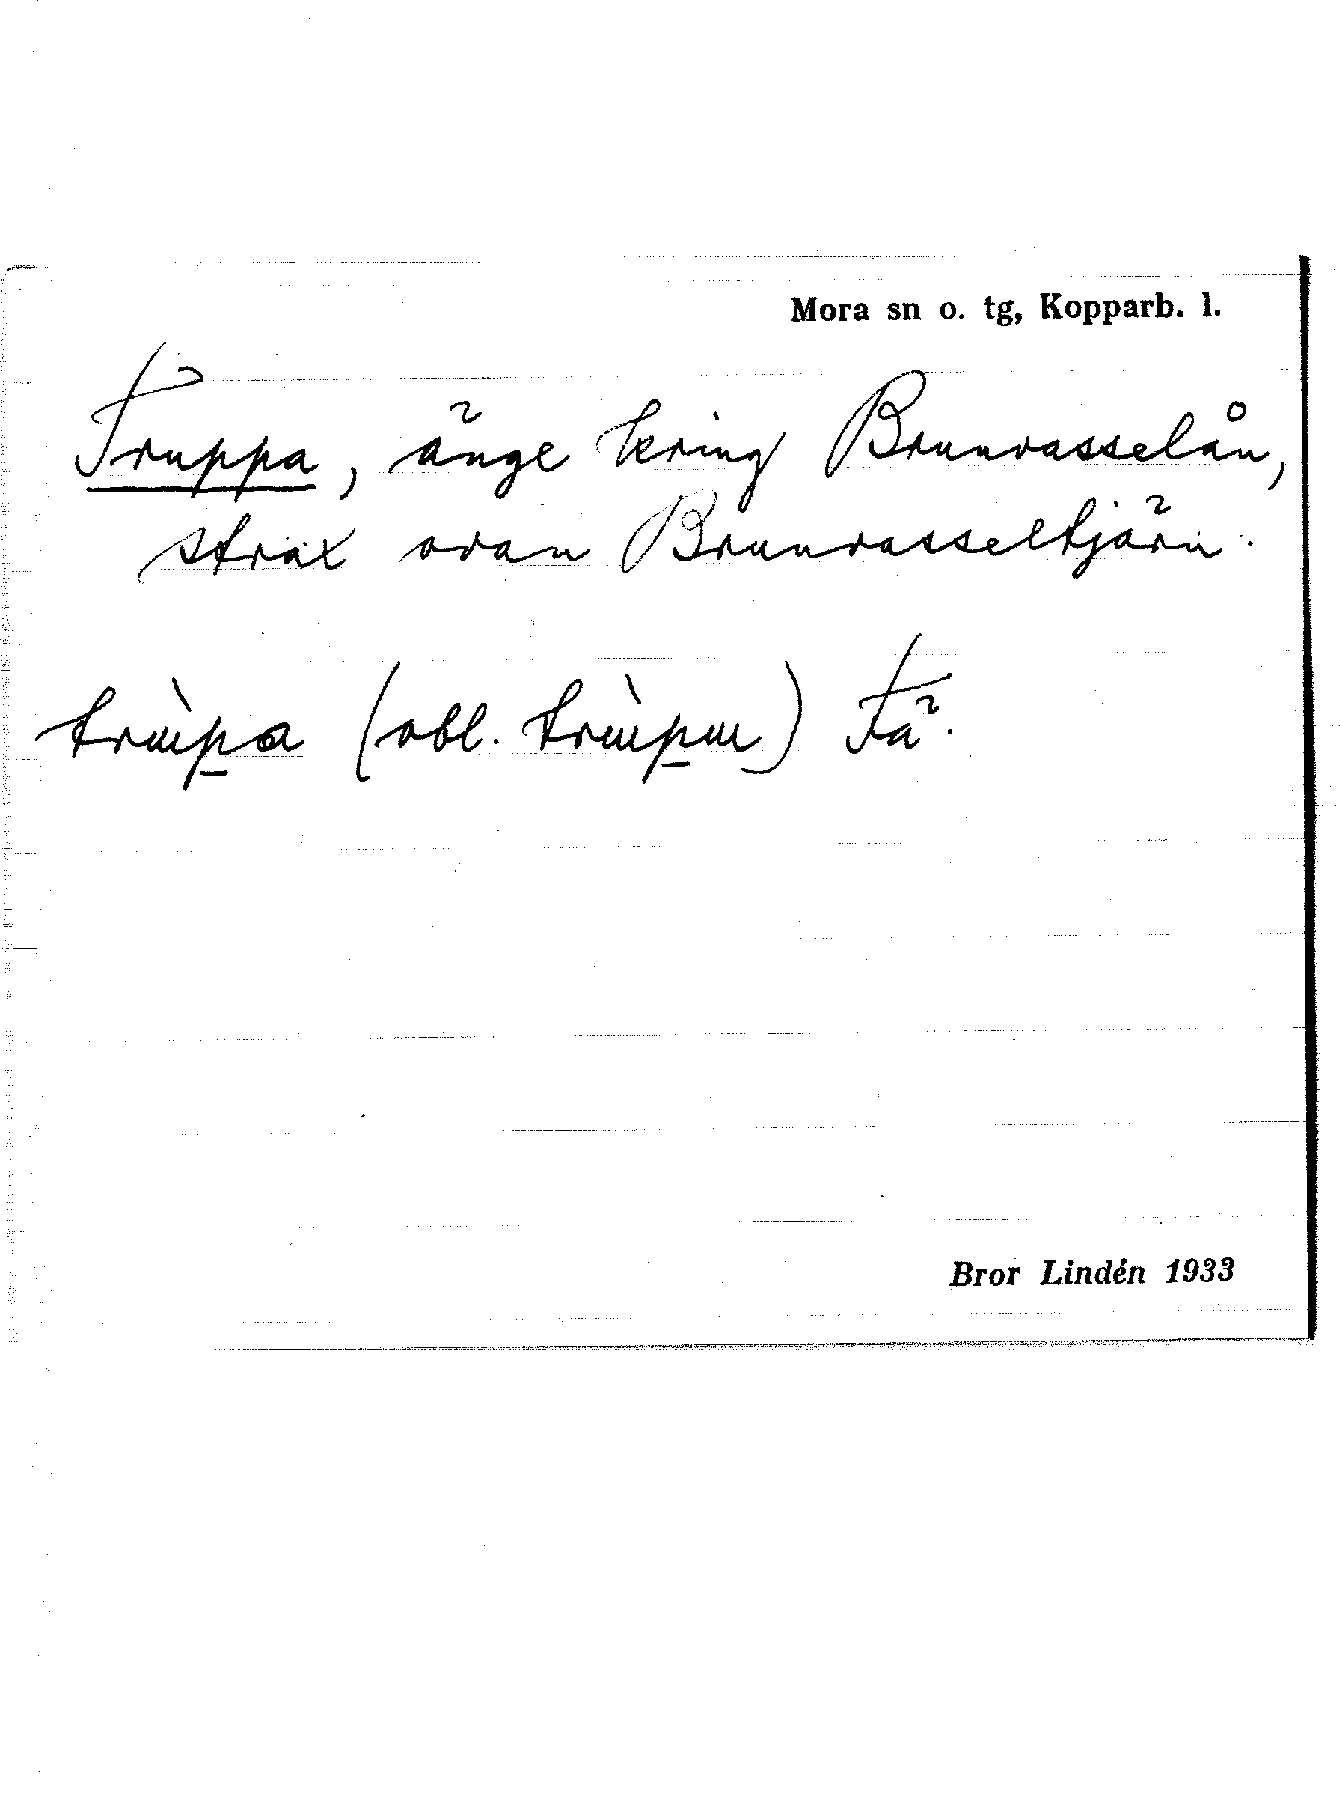 Mora sn o. tg, Kopparb. l.
Truppa, änge kring Brunvasselån,
strax ovan Brunvasseltjärn.
(obl.
Bror Lindén 1933